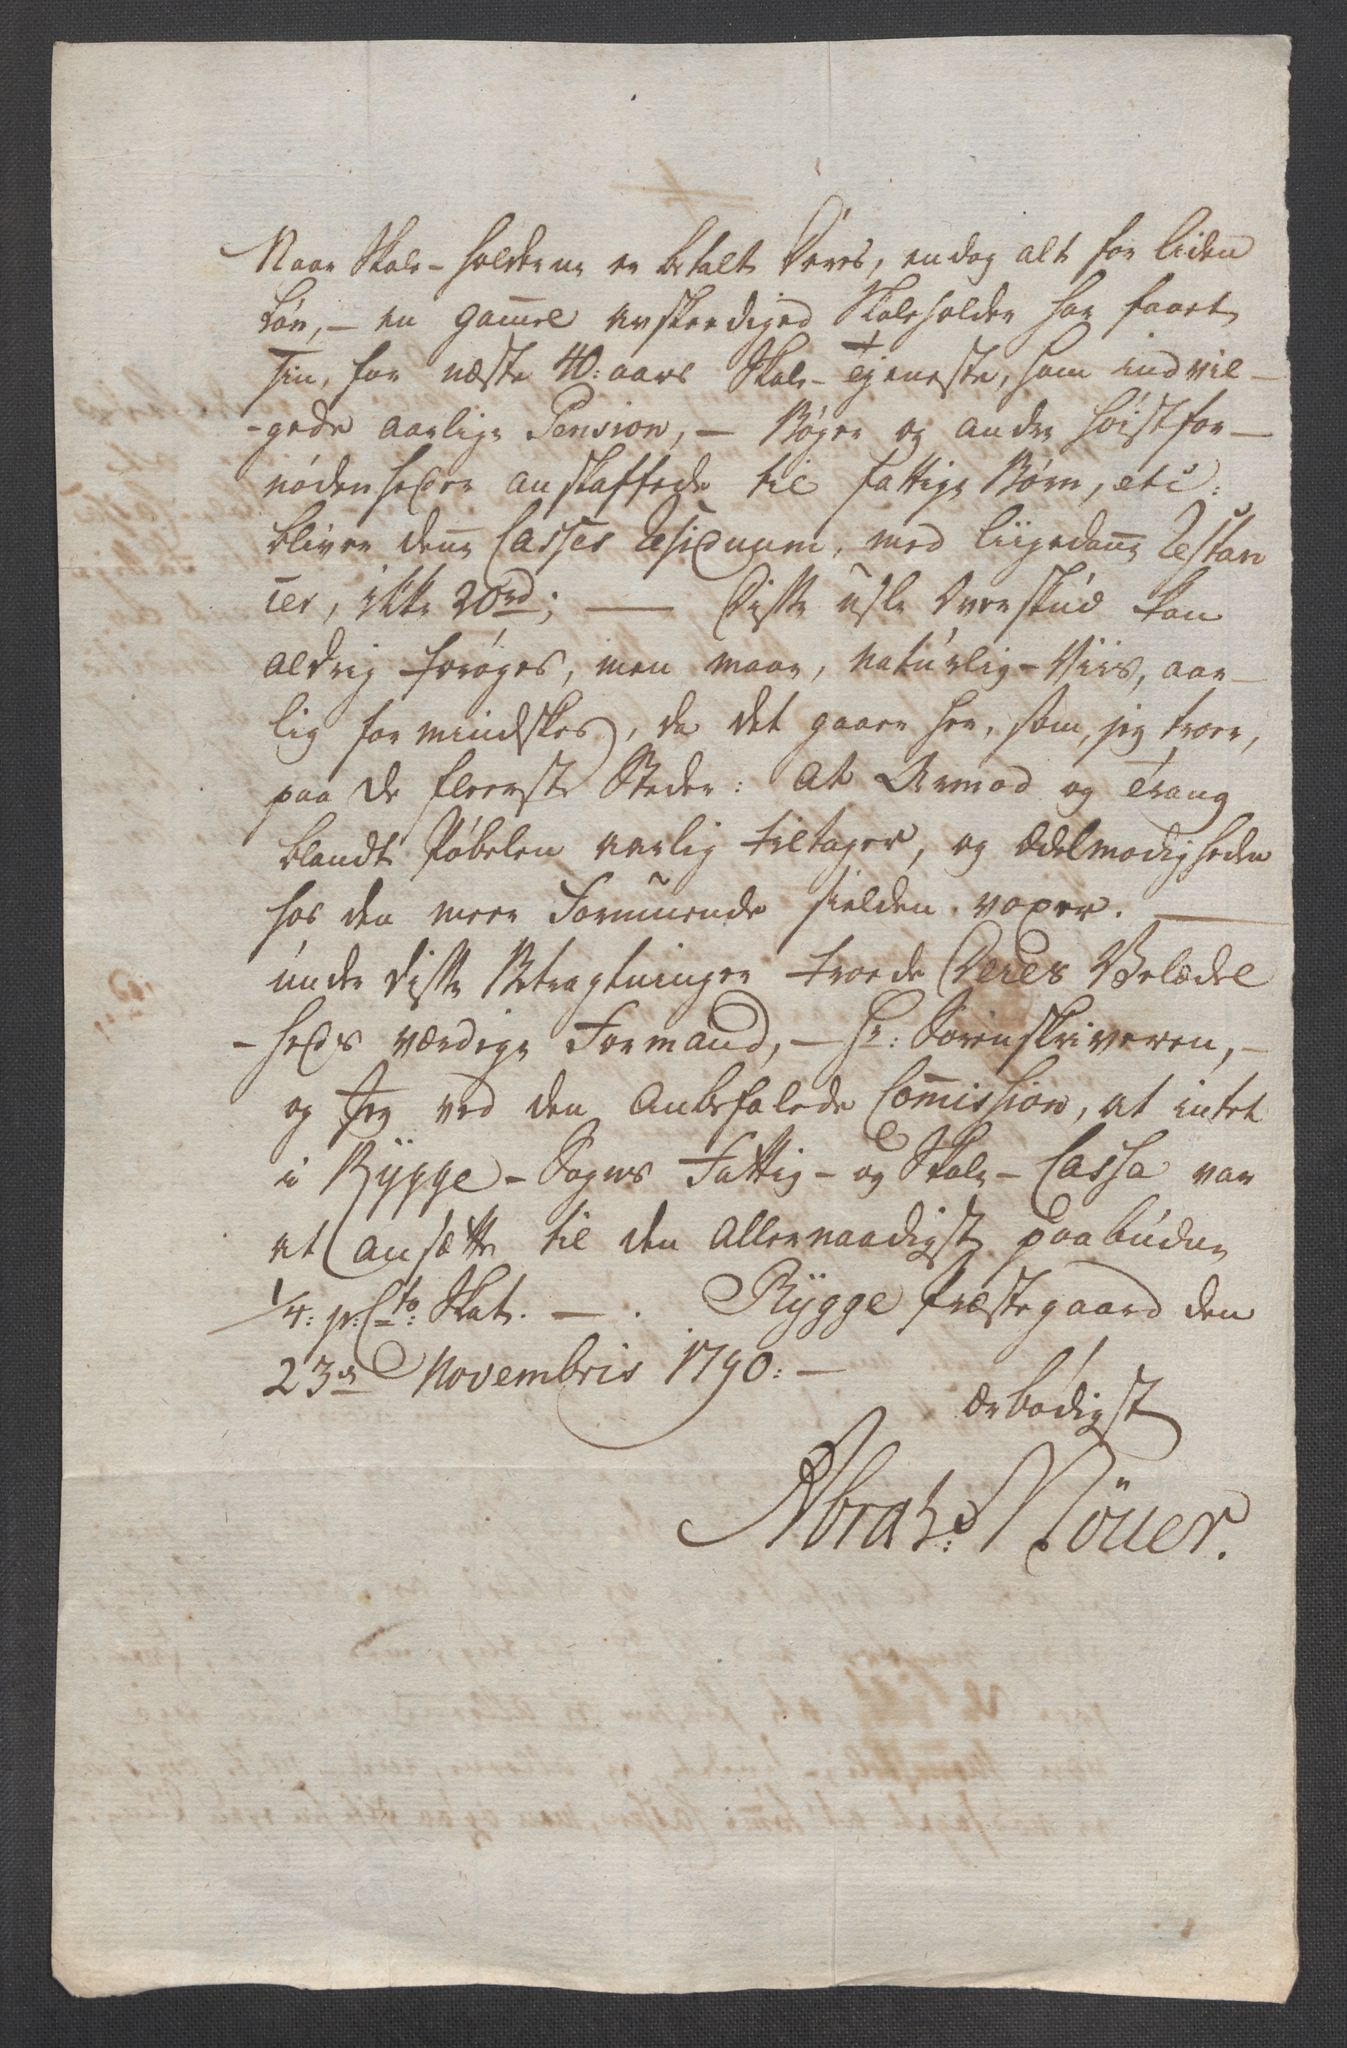 Naar Skole-holderne er betalt deres, endog alt for liden
Løn, – en gam̅el avskediged Skoleholder har faaet
sin, for næste 40: aars Skole-Tjeneste, ham indvil-
-gede aarlige Pension, – Bøger og andre høistfor-
nødenheder anskaffede til fattige Børn, etc:
bliver den̅e Casses Residuum, med liigedan̅e Restan
cer, ikke 20rd; — Disse usle Overskud kan
aldrig forøges, men maae, naturlig-Viis, aar-
lig formindskes, da det gaaer her, som, jeg troer,
paa de fleeste Steder: at Armod og Trang
blandt Pøbelen aarlig tiltager, og Ædelmodigheden
hos den meer Formuende sielden voxer. —
under disse Betragtninger troede Deres Velædel
-heds værdige Formand, – Hr: Sorenskriveren, –
og Jeg ved den anbefalede Com̅ission, at intet
i Rygge-Sogns Fattig- og Skole-Cassa var
at ansætte til den allernaadigst paabudne
1/4: p:Cto: Skat. — . Rygge Præstegaard den
23de Novembris 1790: —
ærbødigst
Abrah: Nöuer.